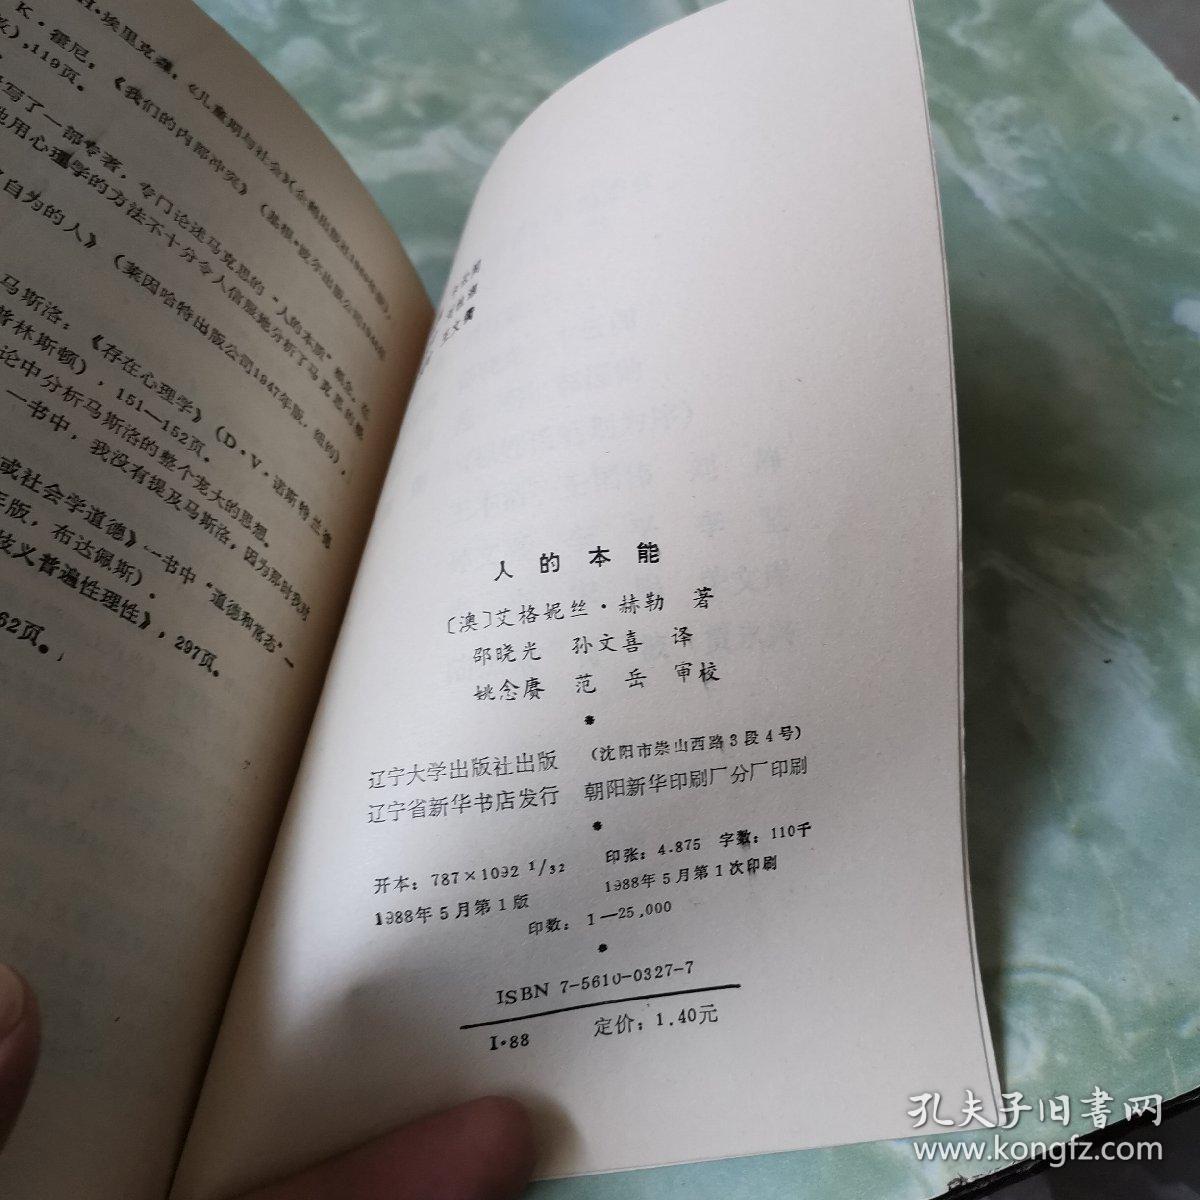 H·埃里克森：《儿童期与社会》
K·霍尼：《我们的内部冲突》
，119页。
写了一部专著，专门论述马克思的“人的本质”概念，在
他用心理学的方法不十分令人信服地分析了马克思的
自为的人》（莱因哈特出版公司1947年版，纽约），
马斯洛：《存在心理学》（D·V·诺斯特兰德
普林斯顿），151—152页。
论中分析马斯洛的整个庞大的思想。
一书中，我没有提及马斯洛，因为那时我对
或社会学道德》一书中“道德和常态”一
年版，布达佩斯）。
义普遍性理性》，297页。
62页。
人的本能
〔澳〕艾格妮丝·赫勒 著
邵晓光 孙文喜 译
姚念赓 范岳 审校
*
辽宁大学出版社出版 （沈阳市崇山西路3段4号）
辽宁省新华书店发行 朝阳新华印刷厂分厂印刷
*
开本：787×1092 1/32 印张：4.875 字数：110千
1988年5月第1版 1988年5月第1次印刷
印数：1—25,000
*
ISBN 7-5610-0327-7
I·88 定价：1.40元
孔夫子旧书网
www.kongfz.com